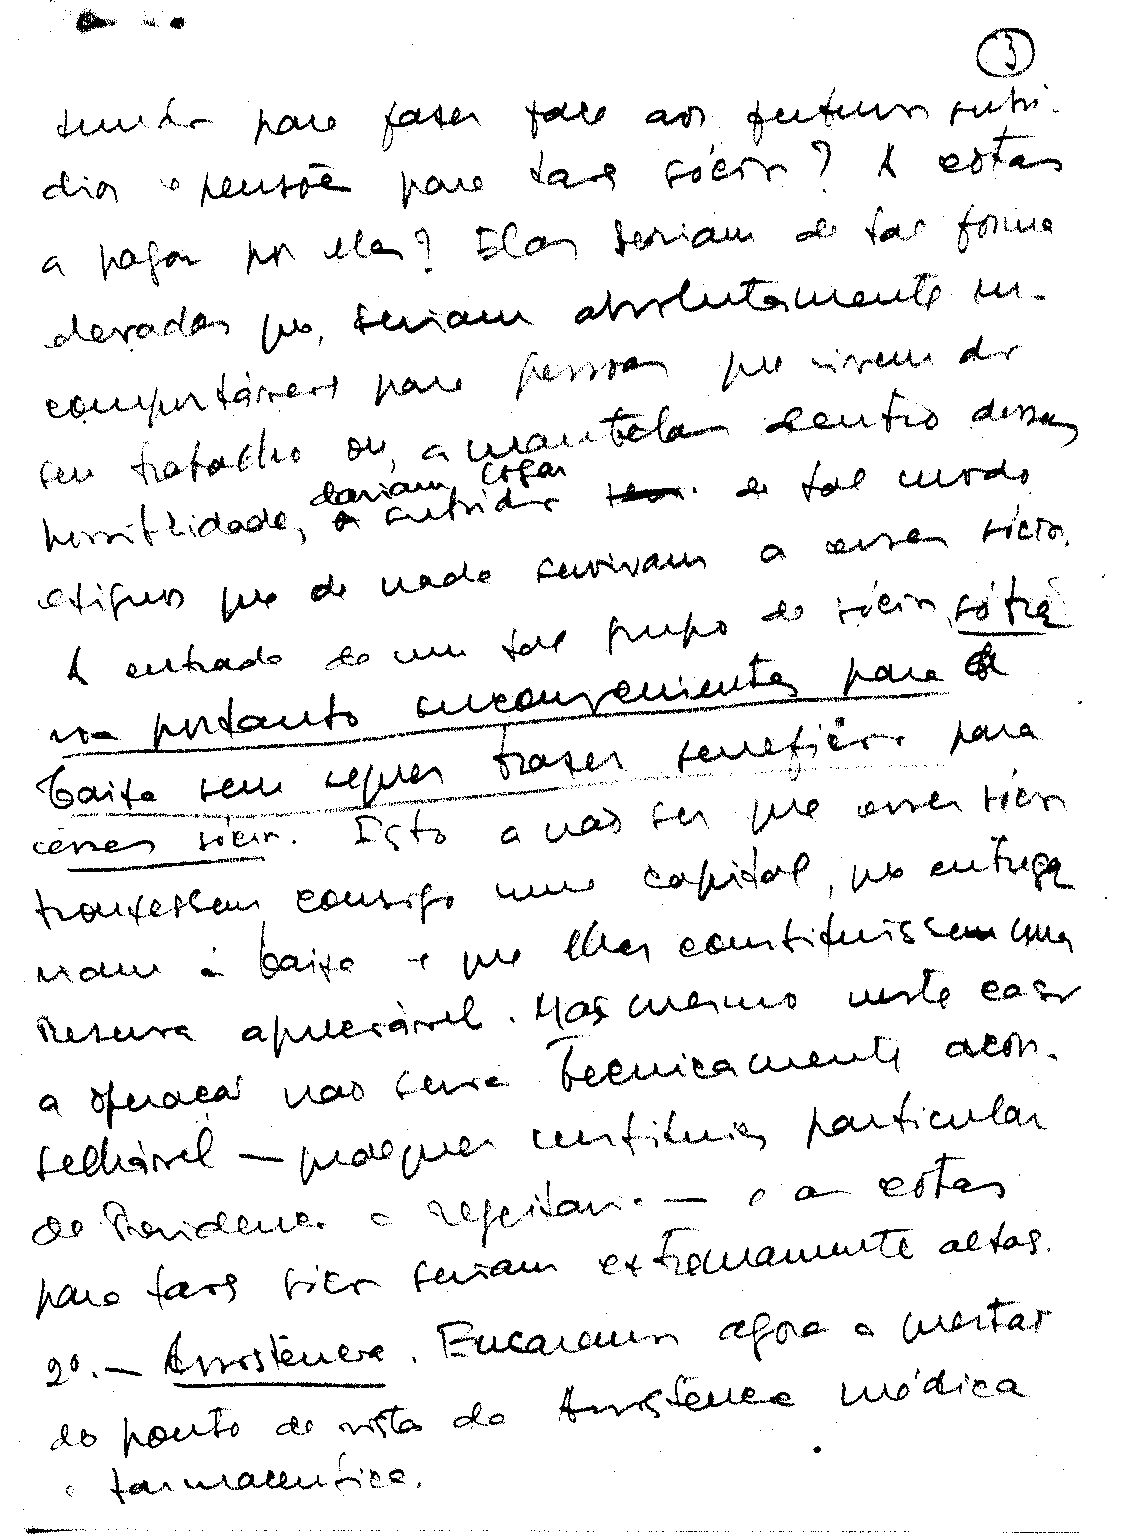 3
fundo para fazer face aos futuros subsi-
dios e pensões para tais sócios? As cotas
a pagar por eles? Elas seriam de tal forma
elevadas que, seriam absolutamente in-
comportáveis para pessoas que vivem do
seu trabalho ou, a mantê-las dentro dessas
dariam lugar
possibilidade, a subsidios de tal modo
exíguos que de nada serviriam a esses sócios.
A entrada de um tal grupo de sócios, só tra
ria portanto inconvenientes para a
Caixa sem sequer trazer benefícios para
esses sócios. Isto a não ser que esses sócios
trouxessem consigo um capital, que entrega
riam à Caixa e que lhes constituissem uma
Reserva apreciável. Mas mesmo neste caso
a operação não seria tecnicamente acon-
selhável — qualquer instituição particular
de Previdencia a rejeitaria — e as cotas
para tais sócios seriam extremamente altas.
2º. — Assistência. Encaramos agora a questão
do ponto de vista da Assistência médica
e farmaceutica.